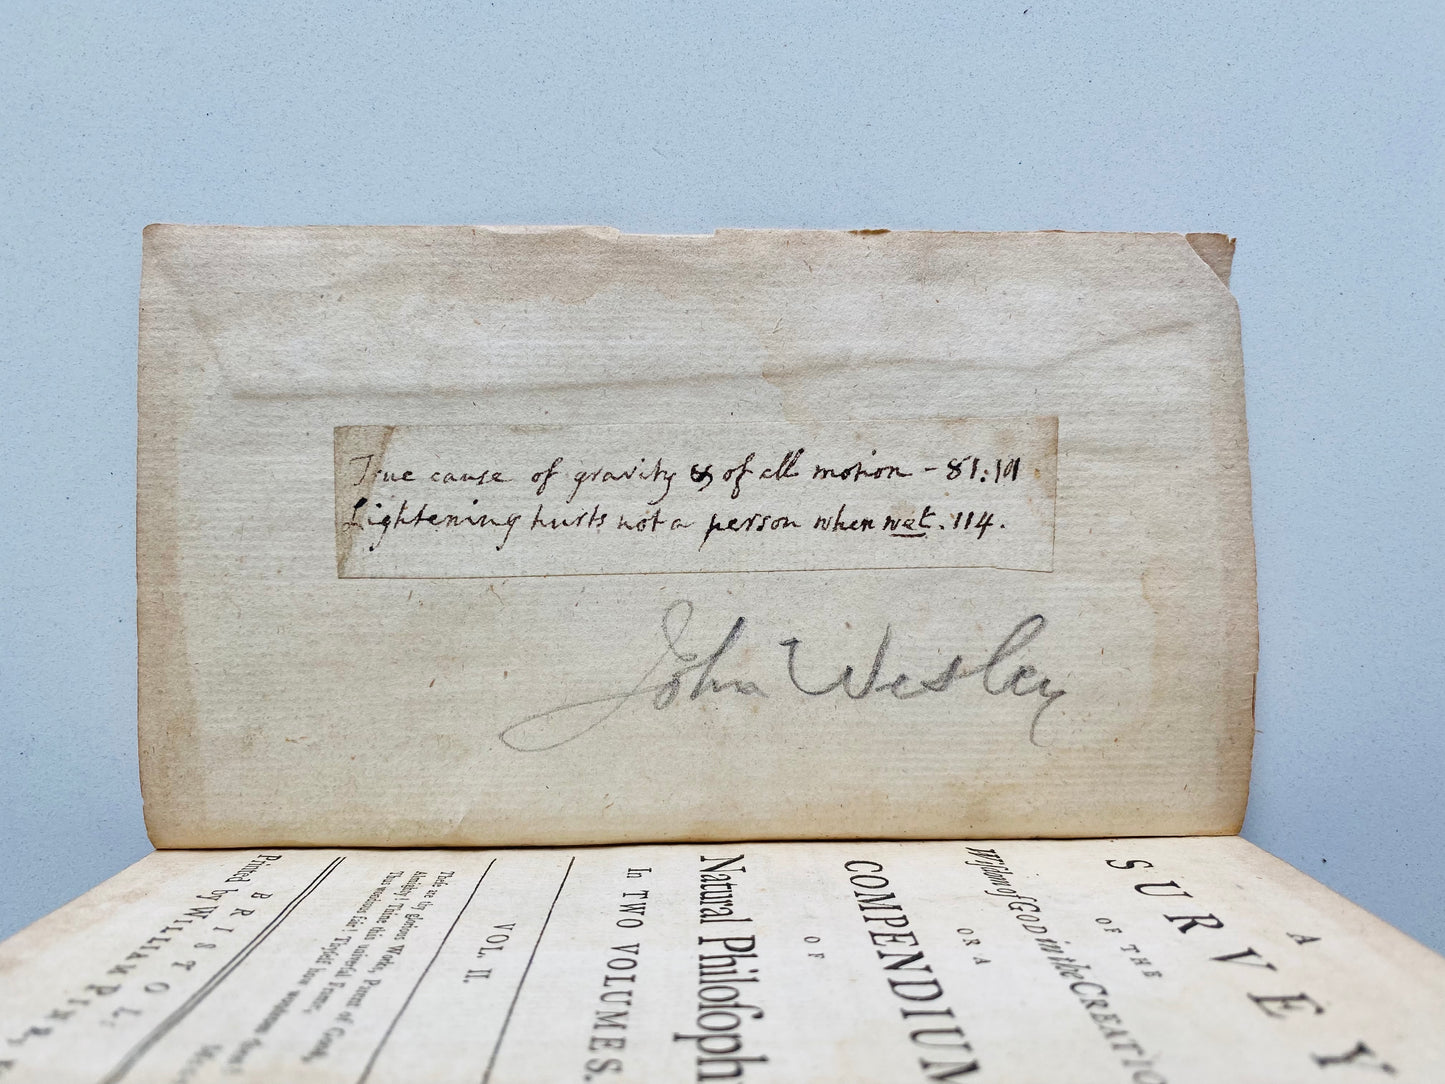 True cause of gravity & of all motion - 81:101
Lightening hurts not a person when wet. 114.
John Wesley
A
SURVEY
OF THE
Wisdom of GOD in the CREATIO
OR A
COMPENDIUM
OF
Natural Philosoph
In TWO VOLUMES.
VOL. II.
These are thy glorious Works, Parent of Good,
Almighty! Thine this universal Frame,
Thus wondrous fair! Thyself how wondrous then!
BRISTOL:
Printed by WILLIAM PINE,